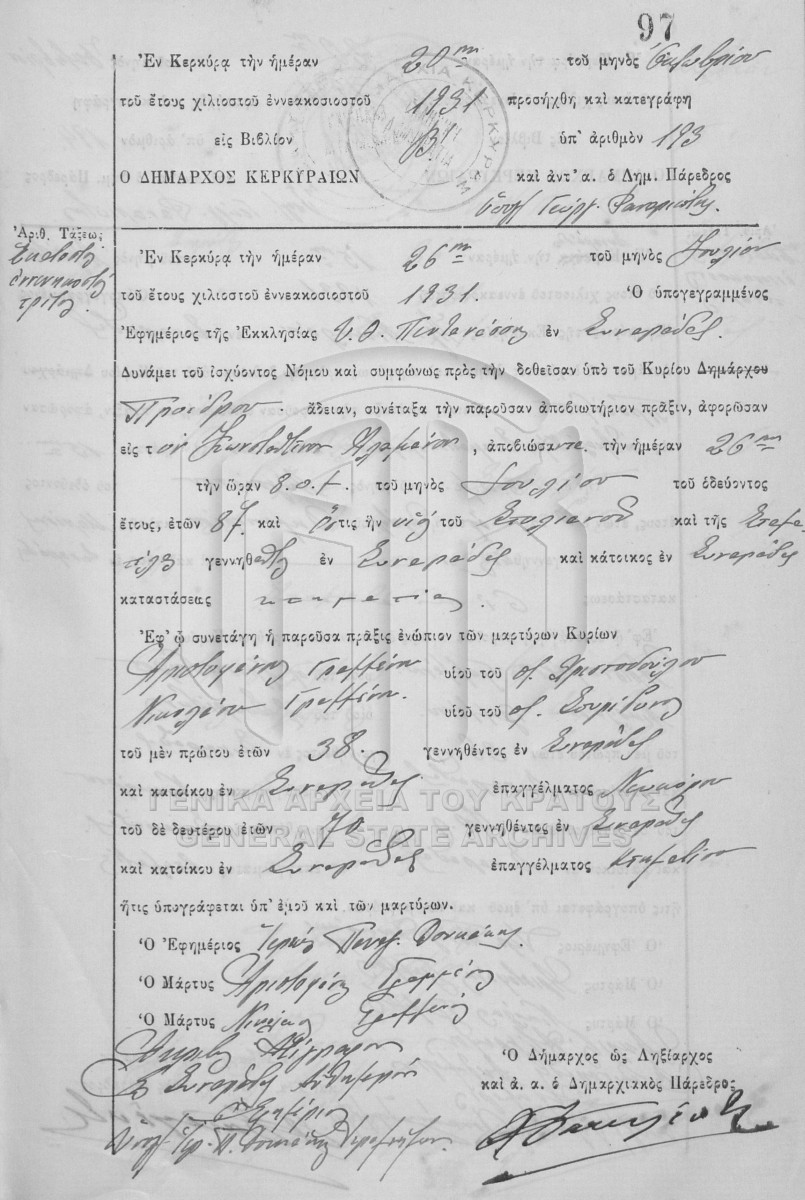 97
Ἐν Κερκύρᾳ τὴν ἡμέραν 20ην τοῦ μηνὸς Ὀκτωβρίου
τοῦ ἔτους χιλιοστοῦ ἐννεακοσιοστοῦ 1931 προσήχθη καὶ κατεγράφη
εἰς Βιβλίον Β' ὑπ' ἀριθμὸν 193
Ο ΔΗΜΑΡΧΟΣ ΚΕΡΚΥΡΑΙΩΝ καὶ ἀντ' α. ὁ Δημ. Πάρεδρος
Γεώργ.
Ἀριθ. Τάξεως
Ἑκατοστὸς
ἐννενηκοστὸς
τρίτος
Ἐν Κερκύρᾳ τὴν ἡμέραν 26ην τοῦ μηνὸς Ἰουλίου
τοῦ ἔτους χιλιοστοῦ ἐννεακοσιοστοῦ 1931. Ὁ ὑπογεγραμμένος
Ἐφημέριος τῆς Ἐκκλησίας Υ. Θ. ἐν Συναράδες
Δυνάμει τοῦ ἰσχύοντος Νόμου καὶ συμφώνως πρὸς τὴν δοθεῖσαν ὑπὸ τοῦ Κυρίου Δημάρχου
Προέδρου ἄδειαν, συνέταξα τὴν παροῦσαν ἀποβιωτήριον πρᾶξιν, ἀφορῶσαν
εἰς τὸν Κωνσταντῖνον Ἀλαμάνον, ἀποβιώσαντα τὴν ἡμέραν 26ην
τὴν ὥραν 8 π.μ. τοῦ μηνὸς Ἰουλίου τοῦ ὁδεύοντος
ἔτους, ἐτῶν 87 καὶ ὅστις ἦν υἱὸς τοῦ Στυλιανοῦ καὶ τῆς Σταμα
τέλας γεννηθεὶς ἐν Συναράδες καὶ κάτοικος ἐν Συναράδες
καταστάσεως κτηματίας.
Ἐφ' ᾧ συνετάγη ἡ παροῦσα πρᾶξις ἐνώπιον τῶν μαρτύρων Κυρίων
Ἀριστοφάνης Γραμμένου υἱοῦ τοῦ Χριστοδούλου
Νικολάου Γραμμένου υἱοῦ τοῦ Σπυρίδωνος
τοῦ μὲν πρώτου ἐτῶν 38. γεννηθέντος ἐν Συναράδες
καὶ κατοίκου ἐν Συναράδες ἐπαγγέλματος Νεωκόρου
τοῦ δὲ δευτέρου ἐτῶν 70 γεννηθέντος ἐν Συναράδες
καὶ κατοίκου ἐν Συναράδες ἐπαγγέλματος κτηματίου
ἥτις ὑπογράφεται ὑπ' ἐμοῦ καὶ τῶν μαρτύρων.
Ὁ Ἐφημέριος Ἱερεὺς
Ὁ Μάρτυς Ἀριστοφάνης Γραμμένος
Ὁ Μάρτυς Νικόλαος Γραμμένος
Ἀκριβὲς Ἀντίγραφον
Ἐν Συναράδες αὐθημερόν
Ὁ Ἐφημέριος
Ὁ Δήμαρχος ὡς Ληξίαρχος
καὶ ἀ. α. ὁ Δημαρχιακὸς Πάρεδρος
ΓΕΝΙΚΑ ΑΡΧΕΙΑ ΤΟΥ ΚΡΑΤΟΥΣ
GENERAL STATE ARCHIVES